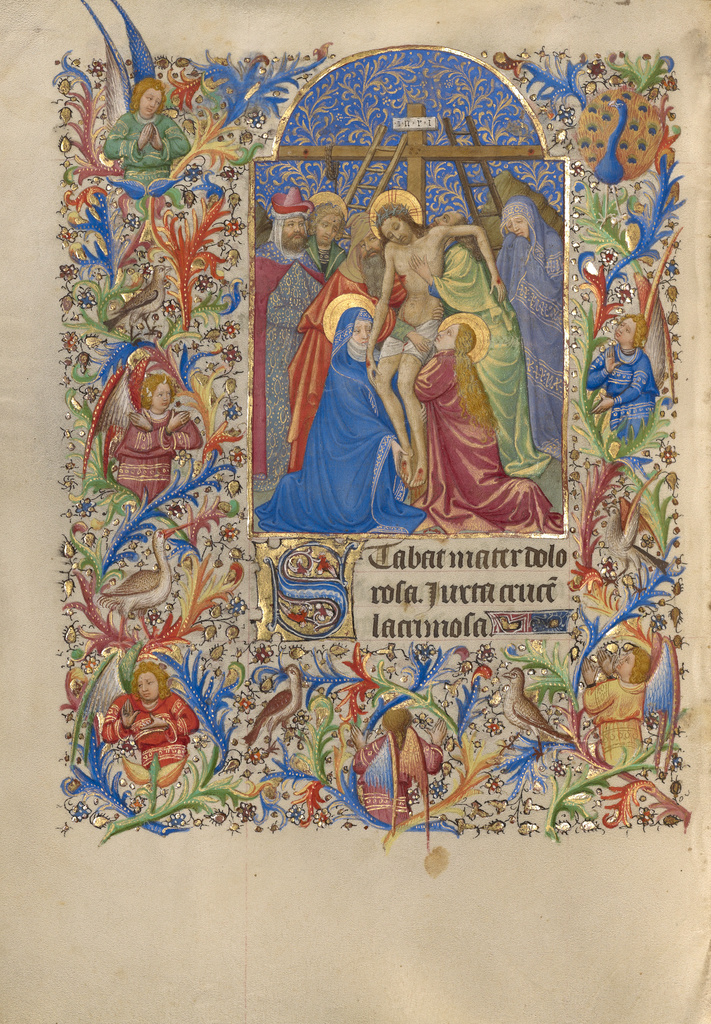 ·I·N·R·I·
Stabat mater dolo
rosa. Iuxta crucē
lacrimosa